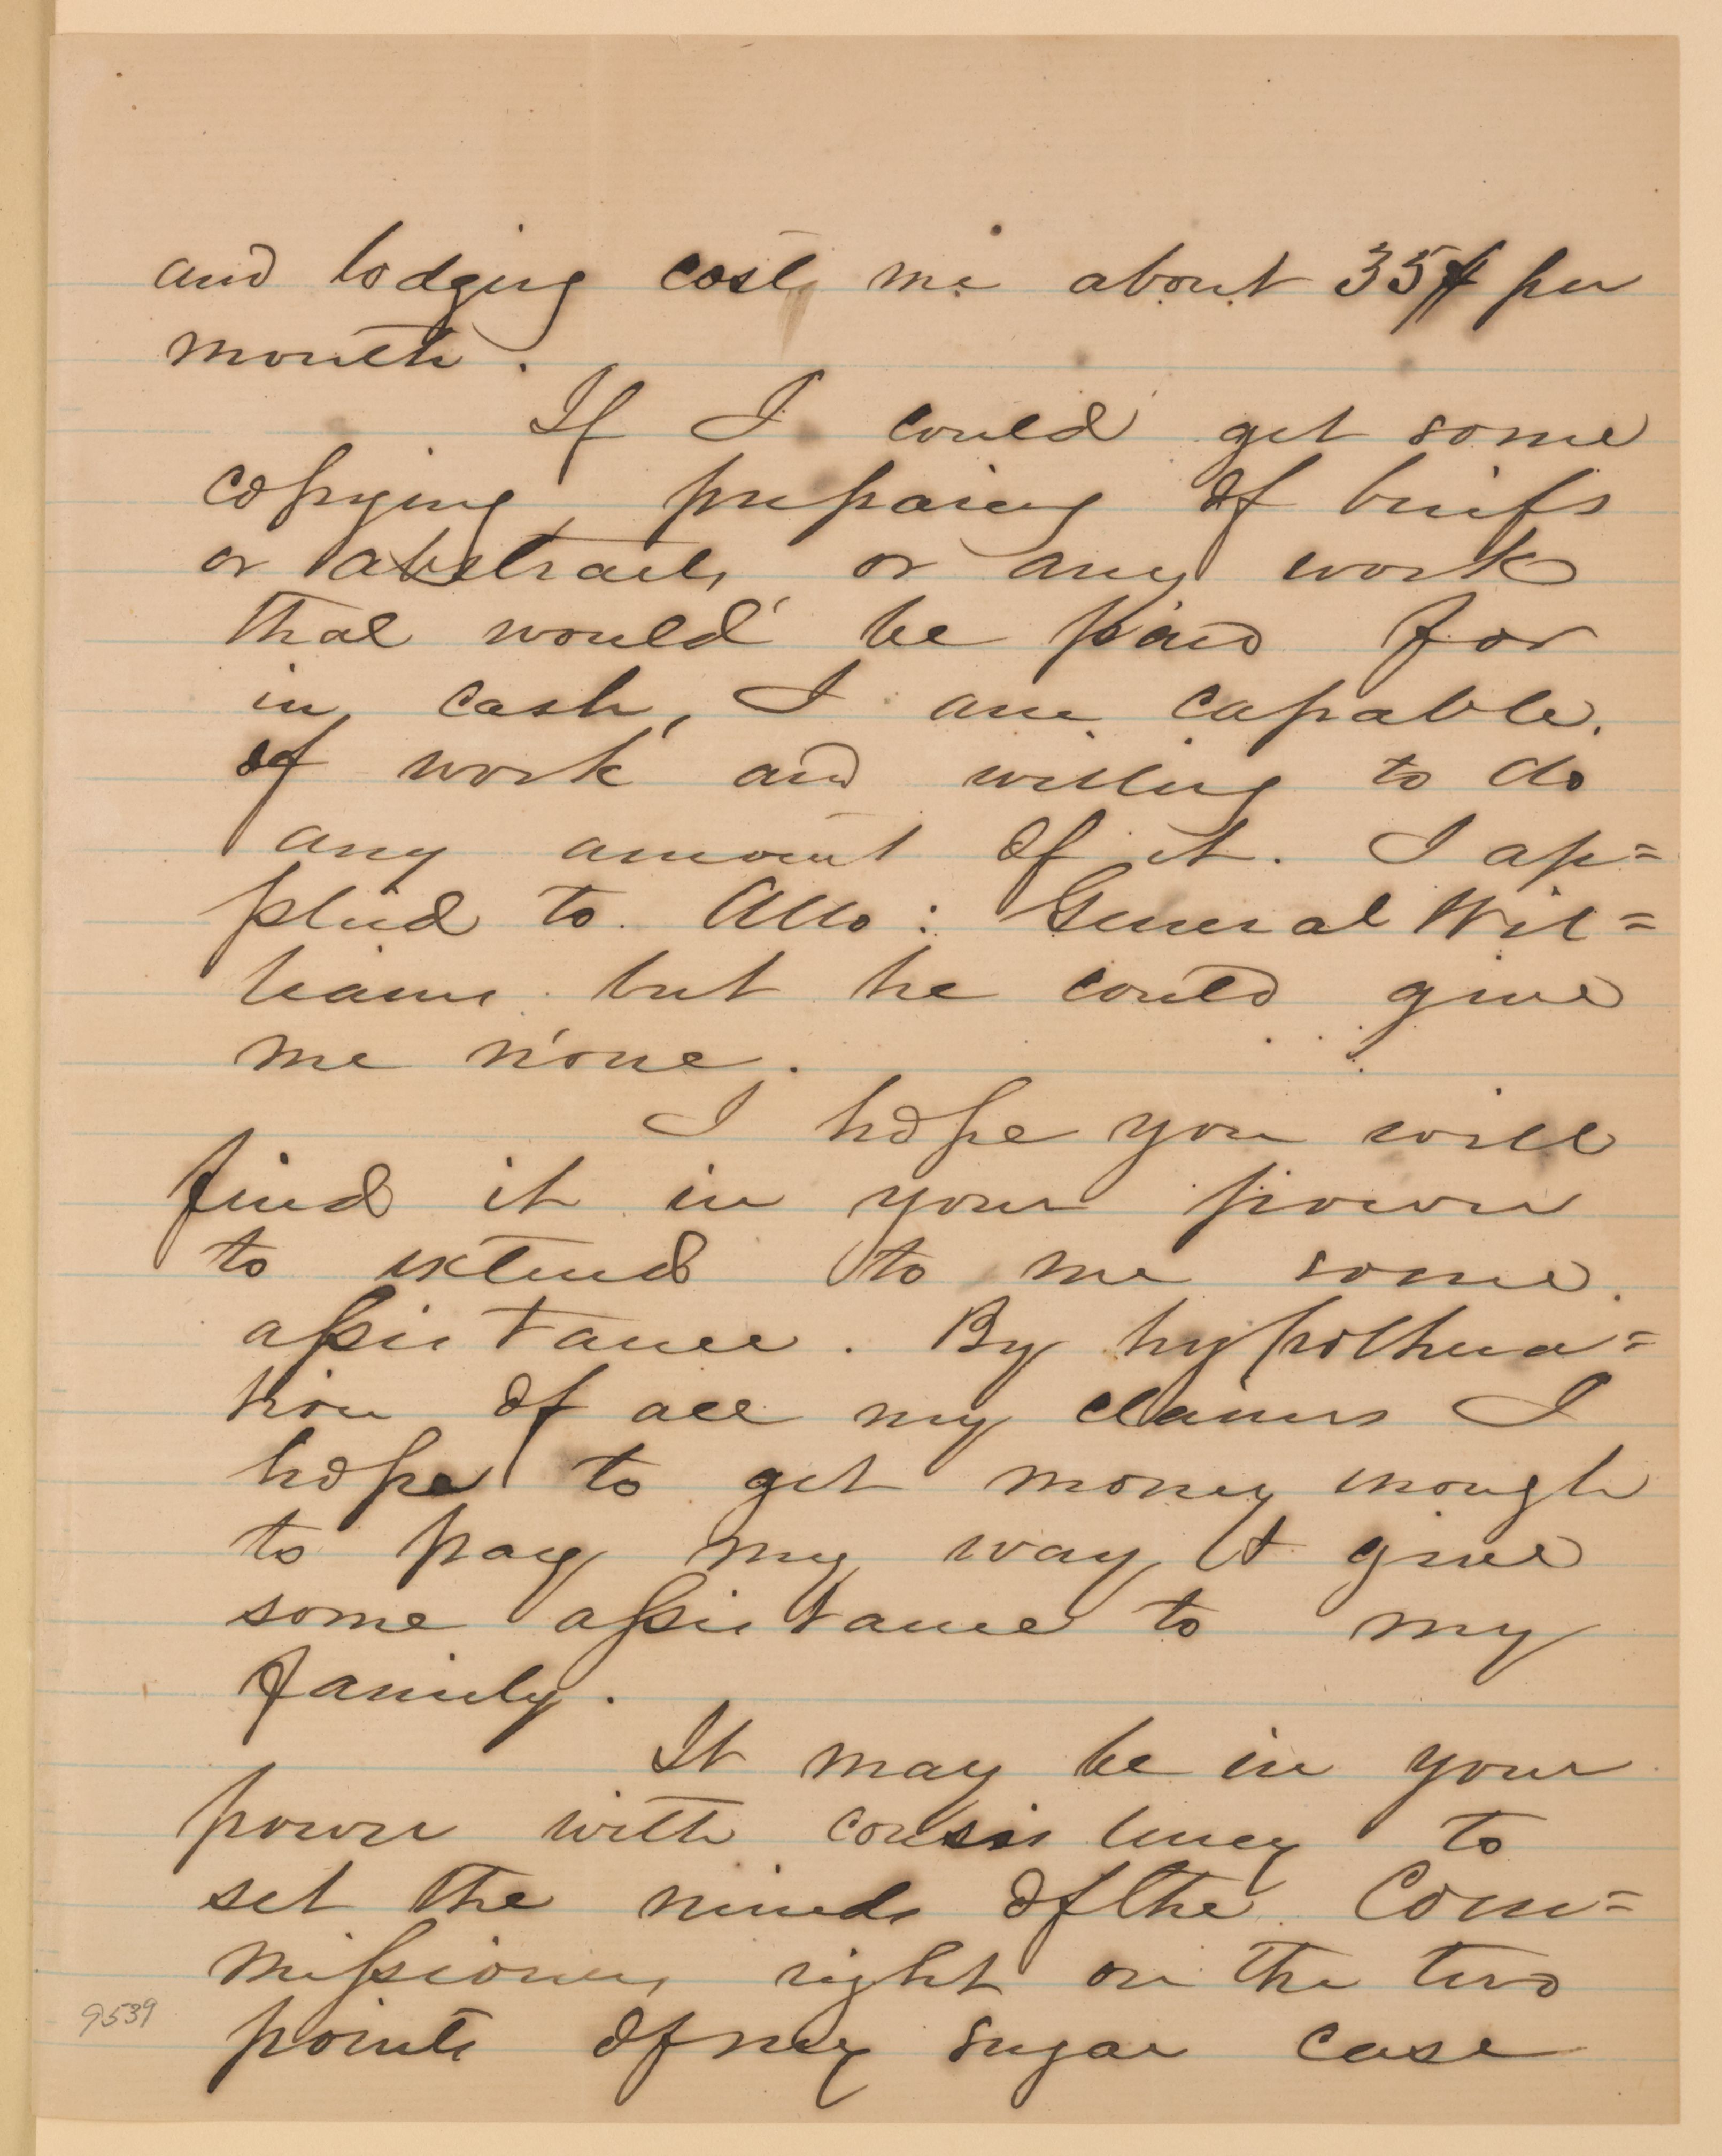 and lodging costs me about 35$ per
month.
If I could get some
copying, preparing of briefs
or abstracts or any work
that would be paid for
in cash, I am capable
of work and willing to do
any amount of it. I ap=
plied to Atto: General Wil=
liams but he could give
me none.
I hope you will
find it in your power
to extend to me some
assistance. By hypotheca=
tion of all my claims I
hope to get money enough
to pay my way & give
some assistance to my
family.
It may be in your
power with consistency to
set the minds of the Com=
missioners right on the two
points of my sugar case
9539